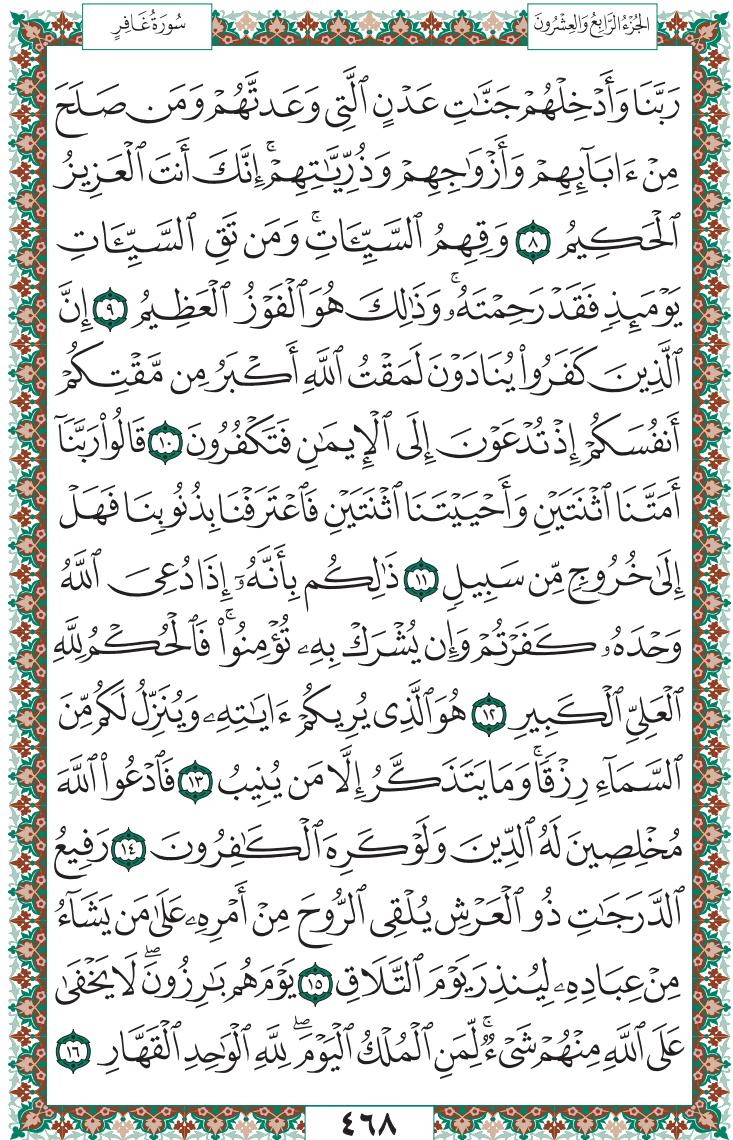 الجُزْءُ الرَّابِعُ وَالعِشْرُونَ
سُورَةُ غَافِرٍ
رَبَّنَا وَأَدْخِلْهُمْ جَنَّٰتِ عَدْنٍ ٱلَّتِي وَعَدتَّهُمْ وَمَن صَلَحَ
مِنْ ءَابَآئِهِمْ وَأَزْوَٰجِهِمْ وَذُرِّيَّٰتِهِمْۚ إِنَّكَ أَنتَ ٱلْعَزِيزُ
ٱلْحَكِيمُ ٨ وَقِهِمُ ٱلسَّيِّـَٔاتِۚ وَمَن تَقِ ٱلسَّيِّـَٔاتِ
يَوْمَئِذٍ فَقَدْ رَحِمْتَهُۥۚ وَذَٰلِكَ هُوَ ٱلْفَوْزُ ٱلْعَظِيمُ ٩ إِنَّ
ٱلَّذِينَ كَفَرُواْ يُنَادَوْنَ لَمَقْتُ ٱللَّهِ أَكْبَرُ مِن مَّقْتِكُمْ
أَنفُسَكُمْ إِذْ تُدْعَوْنَ إِلَى ٱلْإِيمَٰنِ فَتَكْفُرُونَ ١٠ قَالُواْ رَبَّنَآ
أَمَتَّنَا ٱثْنَتَيْنِ وَأَحْيَيْتَنَا ٱثْنَتَيْنِ فَٱعْتَرَفْنَا بِذُنُوبِنَا فَهَلْ
إِلَىٰ خُرُوجٍ مِّن سَبِيلٍ ١١ ذَٰلِكُم بِأَنَّهُۥٓ إِذَا دُعِيَ ٱللَّهُ
وَحْدَهُۥ كَفَرْتُمْ وَإِن يُشْرَكْ بِهِۦ تُؤْمِنُواْۚ فَٱلْحُكْمُ لِلَّهِ
ٱلْعَلِيِّ ٱلْكَبِيرِ ١٢ هُوَ ٱلَّذِى يُرِيكُمْ ءَايَٰتِهِۦ وَيُنَزِّلُ لَكُم مِّنَ
ٱلسَّمَآءِ رِزْقًاۚ وَمَا يَتَذَكَّرُ إِلَّا مَن يُنِيبُ ١٣ فَٱدْعُواْ ٱللَّهَ
مُخْلِصِينَ لَهُ ٱلدِّينَ وَلَوْ كَرِهَ ٱلْكَٰفِرُونَ ١٤ رَفِيعُ
ٱلدَّرَجَٰتِ ذُو ٱلْعَرْشِ يُلْقِى ٱلرُّوحَ مِنْ أَمْرِهِۦ عَلَىٰ مَن يَشَآءُ
مِنْ عِبَادِهِۦ لِيُنذِرَ يَوْمَ ٱلتَّلَاقِ ١٥ يَوْمَ هُم بَٰرِزُونَۖ لَا يَخْفَىٰ
عَلَى ٱللَّهِ مِنْهُمْ شَىْءٌۚ لِّمَنِ ٱلْمُلْكُ ٱلْيَوْمَۖ لِلَّهِ ٱلْوَٰحِدِ ٱلْقَهَّارِ ١٦
٤٦٨